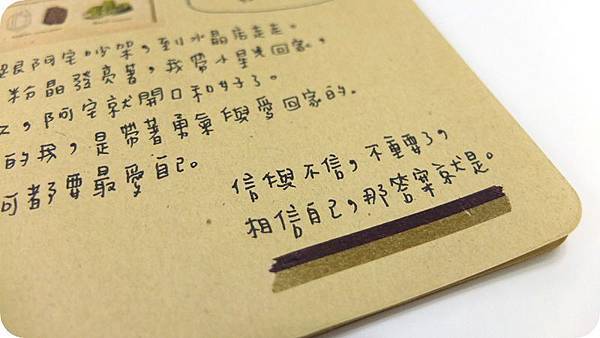 跟阿宅吵架，到水晶店走走。
粉晶發亮著，我帶小星光回家，
，阿宅就開口和好了。
的我，是帶著勇氣與愛回家的。
可都要最愛自己。
信與不信，不重要了，
相信自己，那答案就是。